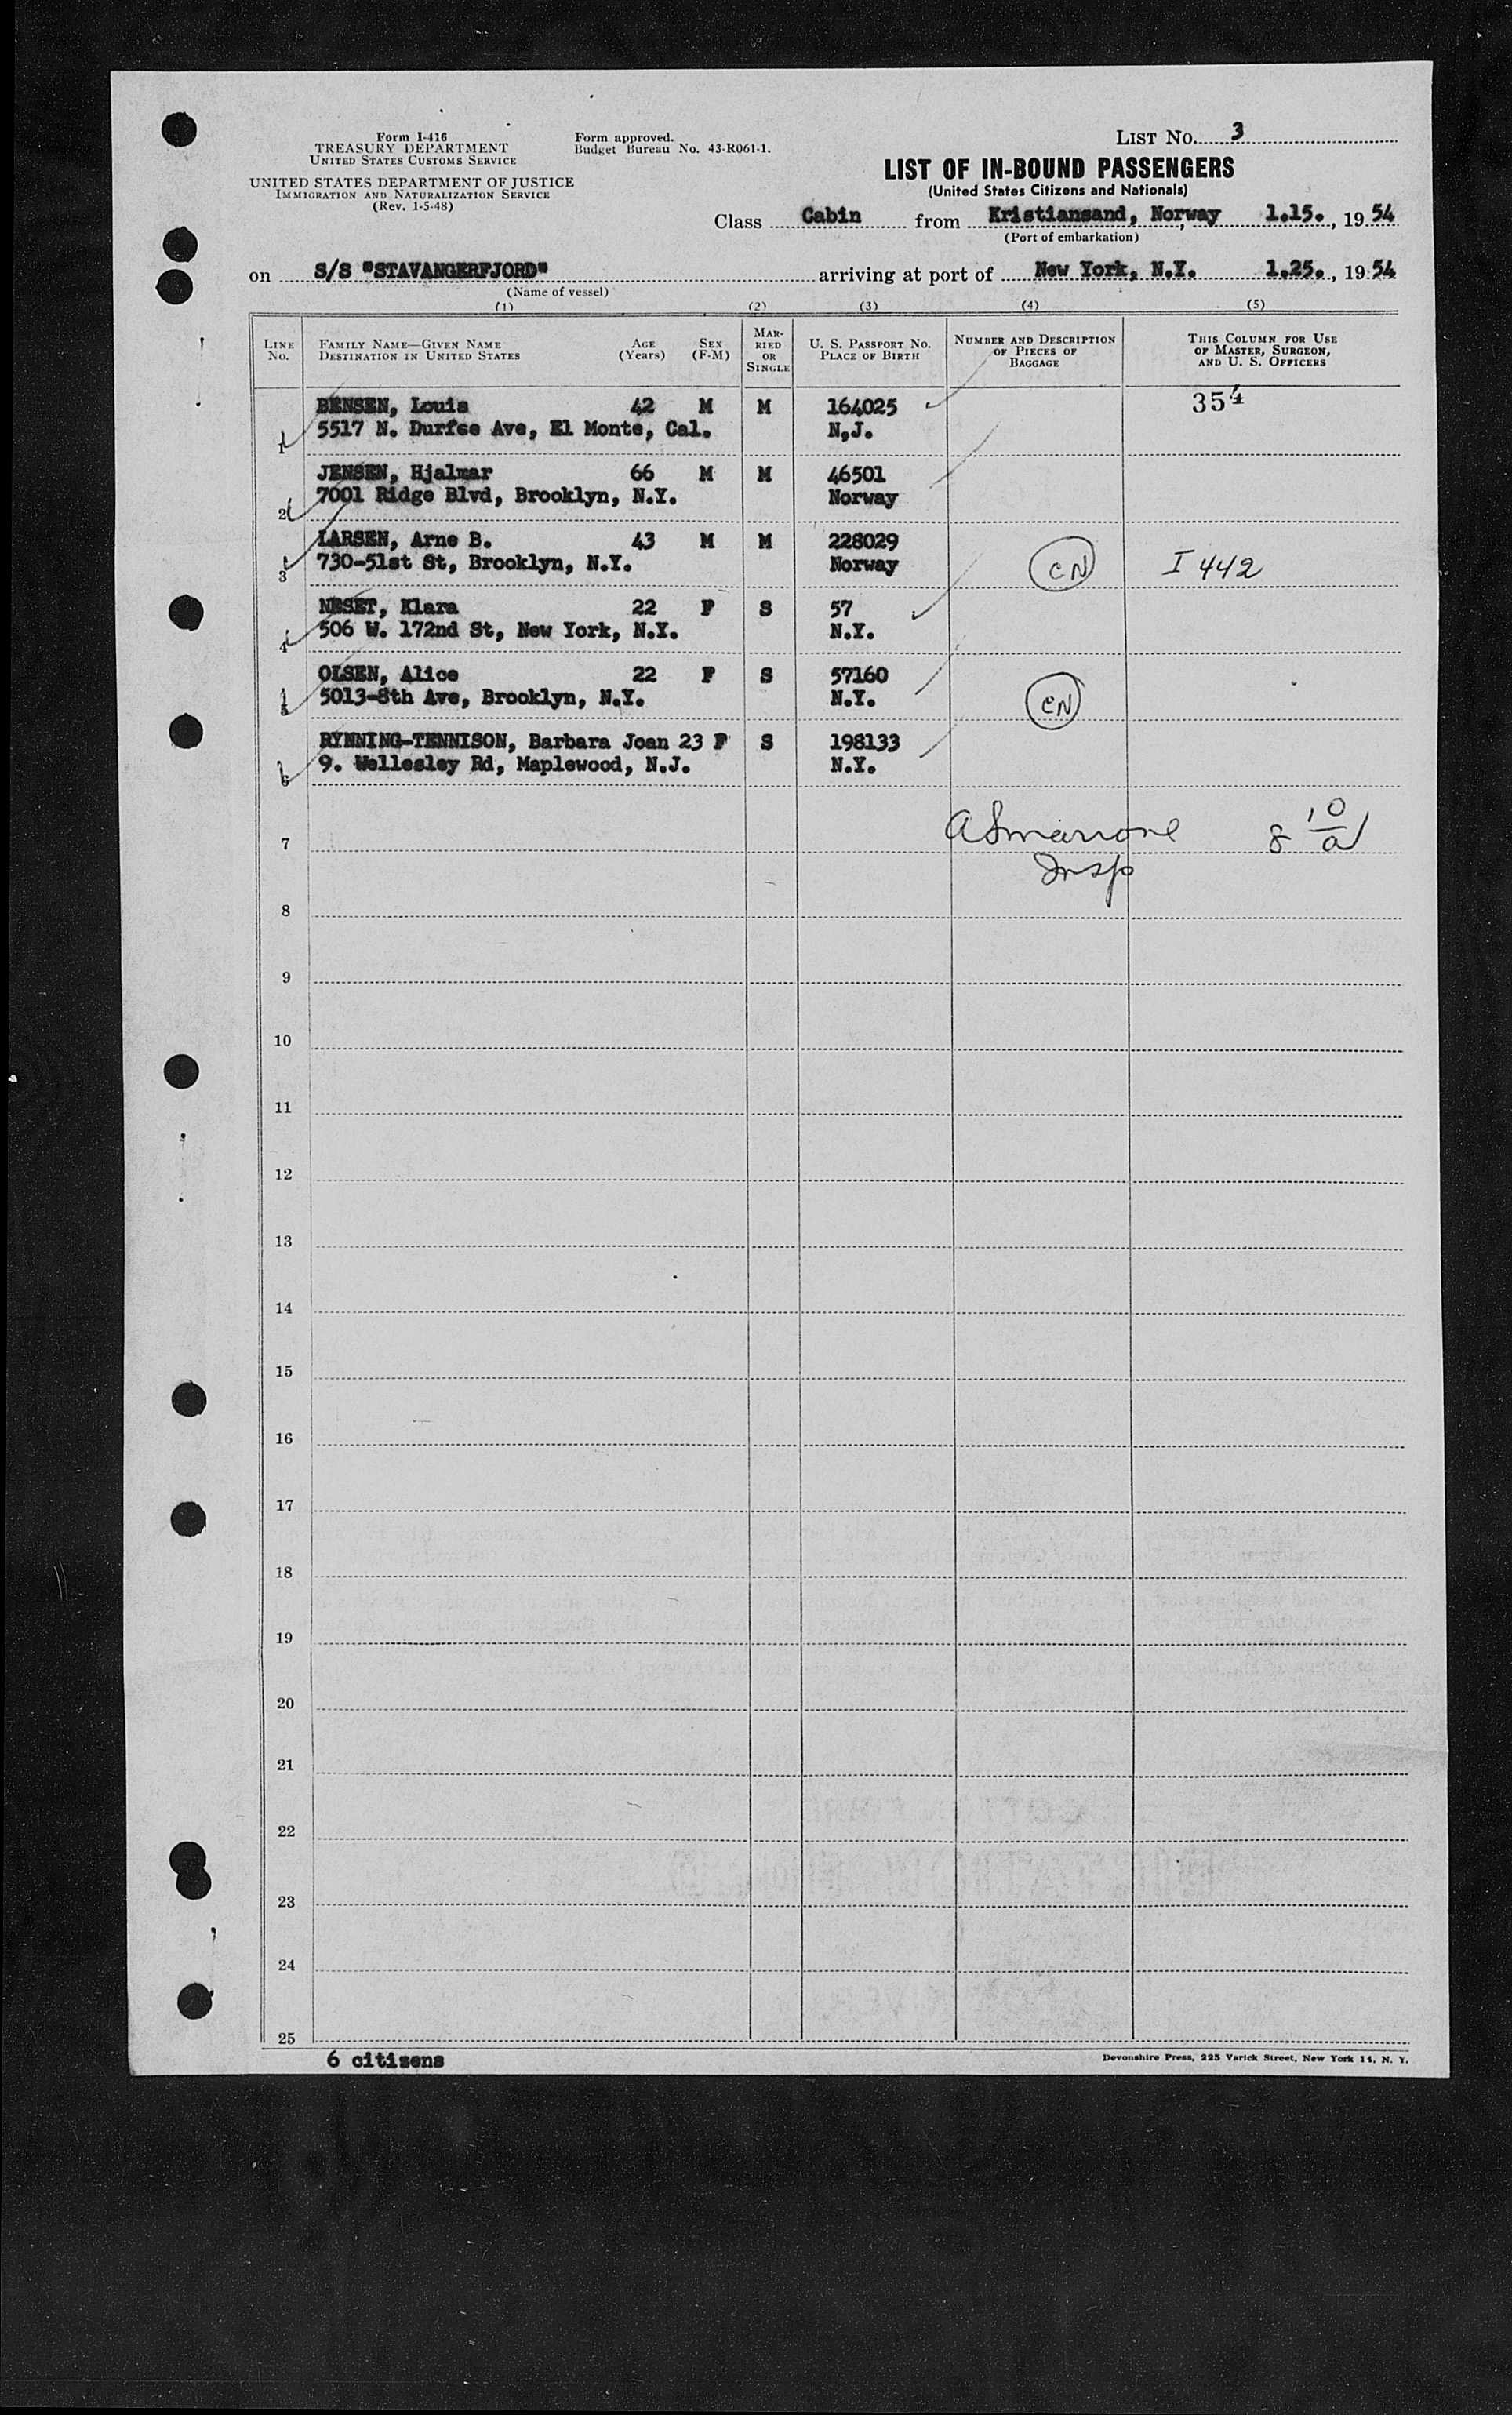 Form I-416
TREASURY DEPARTMENT
UNITED STATES CUSTOMS SERVICE
UNITED STATES DEPARTMENT OF JUSTICE
IMMIGRATION AND NATURALIZATION SERVICE
(Rev. 1-5-48)
Form approved.
Budget Bureau No. 43-R061-1.
LIST No. 3
LIST OF IN-BOUND PASSENGERS
(United States Citizens and Nationals)
Class Cabin from Kristiansand, Norway 1.15., 1954
(Port of embarkation)
on S/S "STAVANGERFJORD" arriving at port of New York, N.Y. 1.25., 1954
(Name of vessel)
(1) (2) (3) (4) (5)
LINE No.
FAMILY NAME—GIVEN NAME
DESTINATION IN UNITED STATES
AGE (Years)
SEX (F-M)
MARRIED OR SINGLE
U. S. PASSPORT No.
PLACE OF BIRTH
NUMBER AND DESCRIPTION OF PIECES OF BAGGAGE
THIS COLUMN FOR USE OF MASTER, SURGEON, AND U. S. OFFICERS
BENSEN, Louis 42 M M 164025 354
1 5517 N. Durfee Ave, El Monte, Cal. N,J.
JENSEN, Hjalmar 66 M M 46501
2 7001 Ridge Blvd, Brooklyn, N.Y. Norway
LARSEN, Arne B. 43 M M 228029
3 730-51st St, Brooklyn, N.Y. Norway CN I 442
NESET, Klara 22 F S 57
4 506 W. 172nd St, New York, N.Y. N.Y.
OLSEN, Alice 22 F S 57160
5 5013-8th Ave, Brooklyn, N.Y. N.Y. CN
RYNNING-TENNISON, Barbara Joan 23 F S 198133
6 9. Wellesley Rd, Maplewood, N.J. N.Y.
7
Insp
8
9
10
11
12
13
14
15
16
17
18
19
20
21
22
23
24
25
6 citizens
Devonshire Press, 225 Varick Street, New York 14, N. Y.